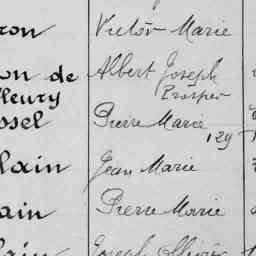 ron Victor Marie
on de Albert Joseph
fleury Prosper
ssel Pierre Marie
129
lain Jean Marie
ain Pierre Marie
lain Joseph Olivier